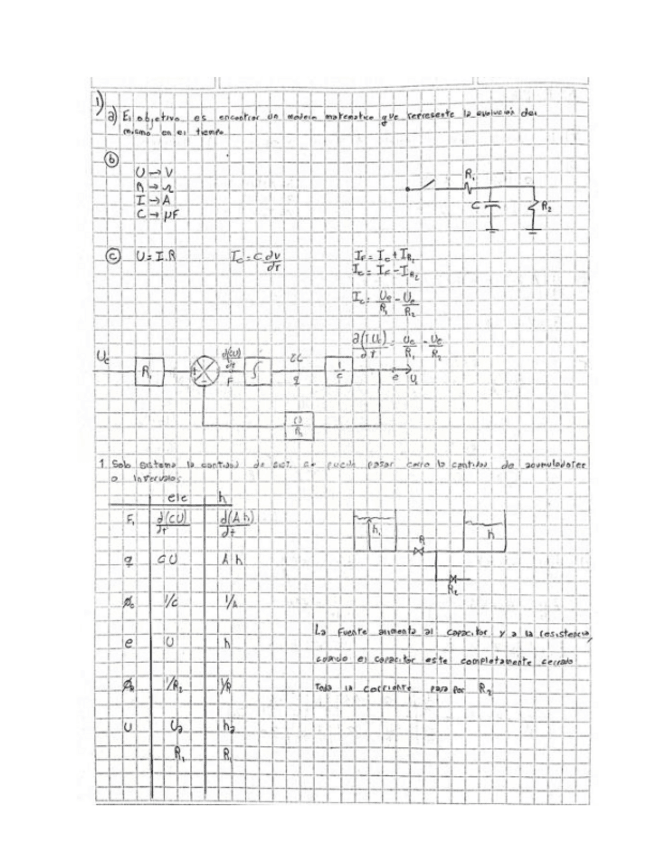 1)
a) El objetivo es encontrar un modelo matematico que represente la evolución del
mismo en el tiempo
b
U → V
R → Ω
I → A
C → μF
R1
C
R2
c U = I.R
Ic = C dV/dt
IF = Ic + IR2
Ic = IF - IR2
Ic = Ue/R1 - Ue/R2
Uc
R1
+
-
d(CU)/dt
F
∫
q
1/c
e
U
1 Solo sistema la cantidad de se puede pasar como la cantidad de acumuladores
o intervalos
ele h
F1 d(CU)/dt d(Ah)/dt
q CU Ah
1/C 1/A
e U h
1/R2 1/R
U U2 h2
R1 R1
h1
R
h
R2
La Fuente al capacitor y a la resistencia,
cuando el capacitor este completamente cerrado
Toda la corriente por R2